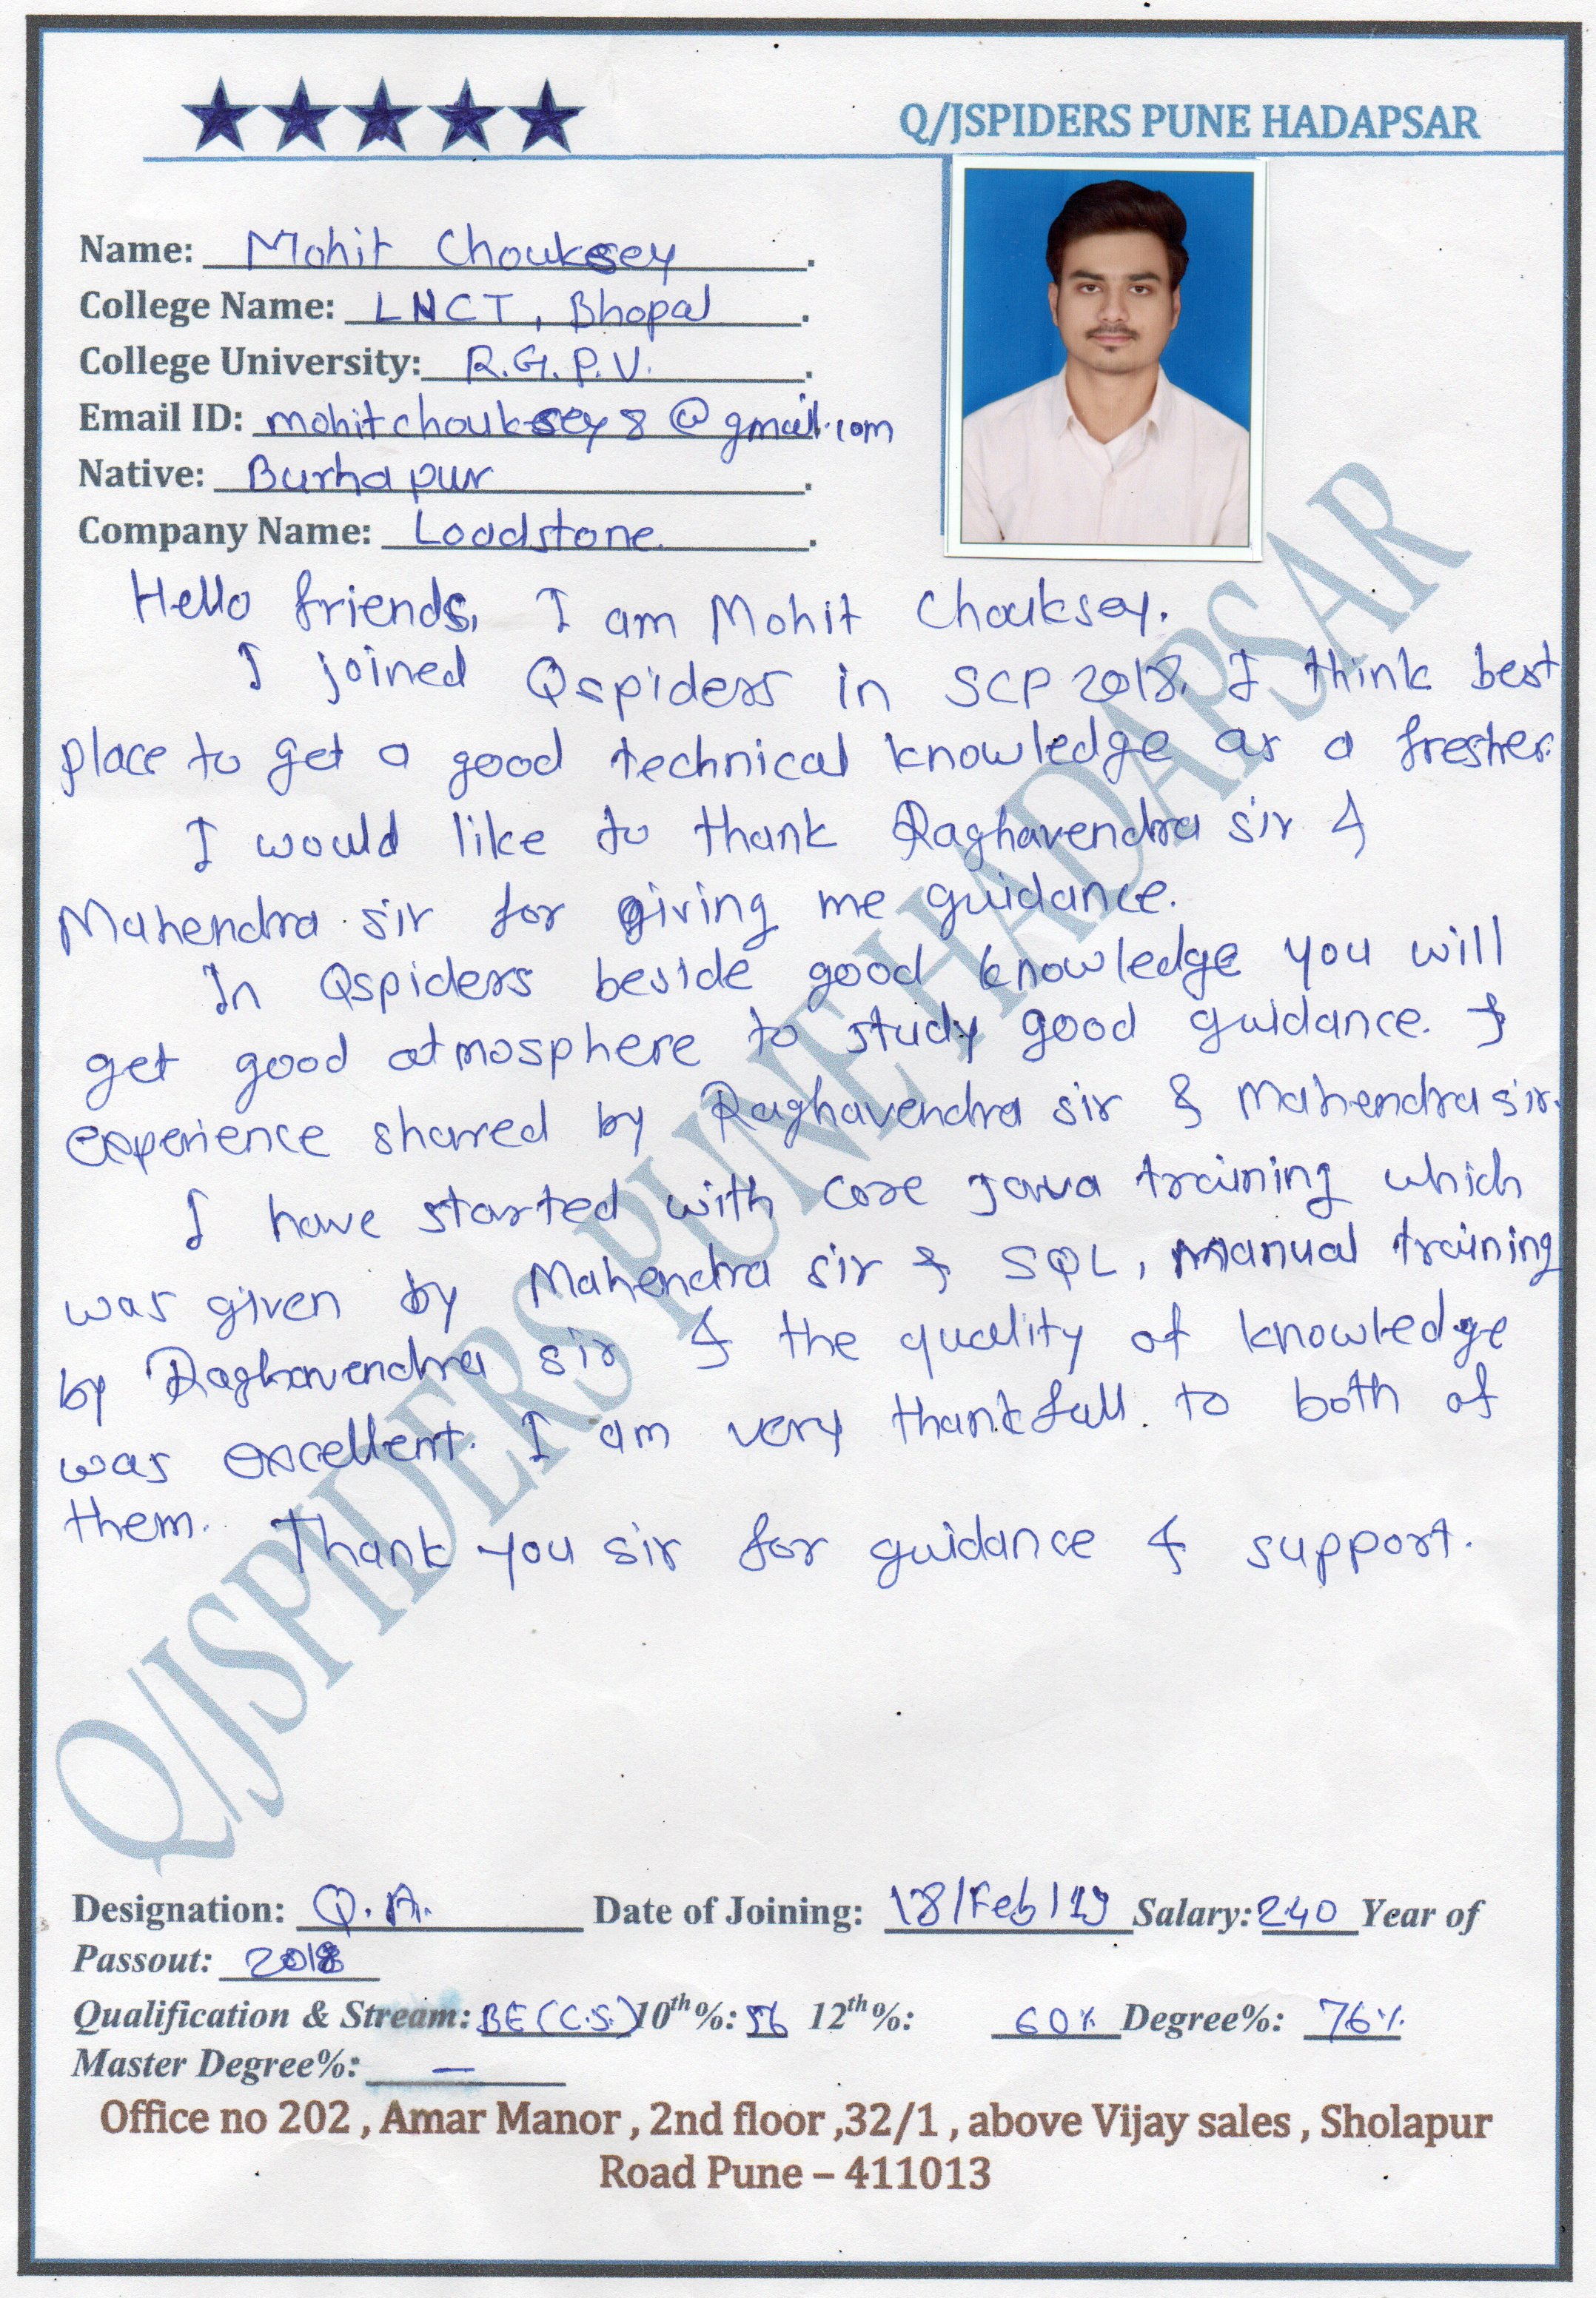 Q/JSPIDERS PUNE HADAPSAR
Name: Mohit Chouksey.
College Name: LNCT, Bhopal.
College University: R.G.P.V.
Email ID: mohitchouksey8@gmail.com
Native: Burhapur.
Company Name: Loadstone.
Hello friends, I am Mohit Chouksey.
I joined Qspiders in SCP 2018. I think best
place to get a good technical knowledge as a fresher.
I would like to thank Raghavendra sir &
Mahendra sir for giving me guidance.
In Qspiders beside good knowledge you will
get good atmosphere to study good guidance. &
experience shared by Raghavendra sir & Mahendra sir.
I have started with core Java training which
was given by Mahendra sir & SQL, Manual training
by Raghavendra sir & the quality of knowledge
was excellent. I am very thankfull to both of
them. Thank you sir for guidance & support.
Q/JSPIDERS PUNE HADAPSAR
Designation: Q.A. Date of Joining: 18/Feb/19 Salary: 240 Year of
Passout: 2018
Qualification & Stream: BE (C.S.) 10th%: 56 12th%: 60% Degree%: 76%
Master Degree%: —
Office no 202 , Amar Manor , 2nd floor ,32/1 , above Vijay sales , Sholapur
Road Pune – 411013